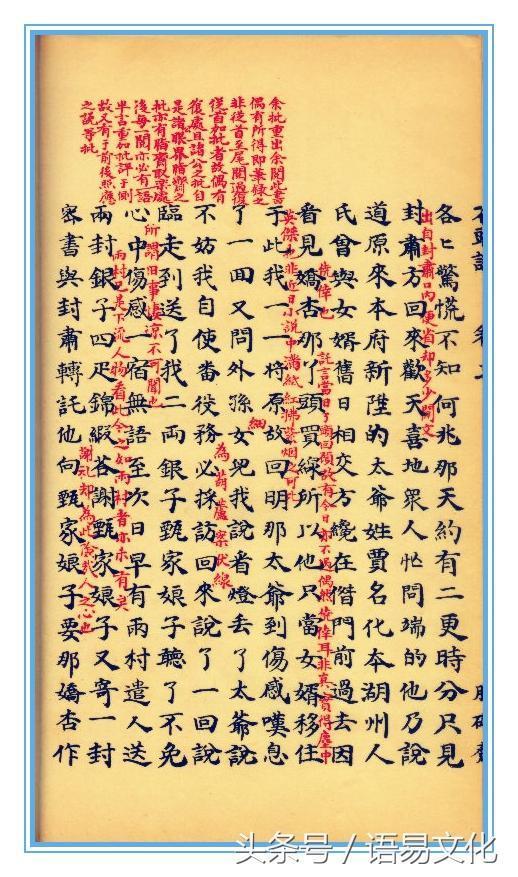 余批重出余閱此書
偶有所得即筆錄之
非從首至尾閱過復
從首加批者故偶有
復處且諸公之批自
是諸公眼界脂齋之
批亦有脂齋取樂處
後每一閱亦必有一語
半言重加批評于側
故又有于前後照應
之說等批
石頭記 卷二 脂硯齋
各々驚慌不知何兆那天約有二更時分只見
出自封肅口内便省却多少閒文
封肅方回來歡天喜地衆人忙問端的他乃說
道原來本府新陞的太爺姓賈名化本湖州人
氏曾與女婿舊日相交方纔在偺門前過去因
僥倖也
託言當日丫頭回顧故有今日亦不過偶然僥倖耳非真實得塵中
看見嬌杏那丫頭買線所以他只當女婿移住
英傑也非近日小說中滿紙紅拂紫烟之可比
于此我一一將原故回明那太爺到傷感嘆息
細
了一回又問外孫女兒我說看燈丟了太爺說
為葫蘆案伏線
不妨我自使番役務必採訪回來說了一回說
臨走到送了我二両銀子甄家娘子聽了不免
所謂舊事凄凉不可聞也
心中傷感一宿無語至次日早有雨村遣人送
雨村已是下流人物看此今之如雨村者亦未有矣
兩封銀子四疋錦緞荅謝甄家娘子又寄一封
謝礼却為此險哉人之心也
密書與封肅轉託他向甄家娘子要那嬌杏作
头条号 / 语易文化